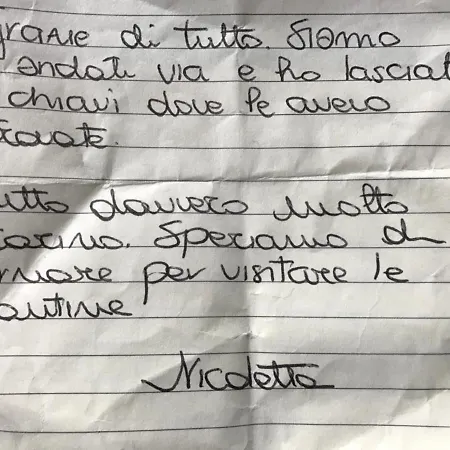 grazie di tutto. Siamo
andati via e ho lasciat
chiavi dove le avevo
trovate.
utto davvero molto
carino. Speriamo di
rnare per visitare le
antine
Nicoletta